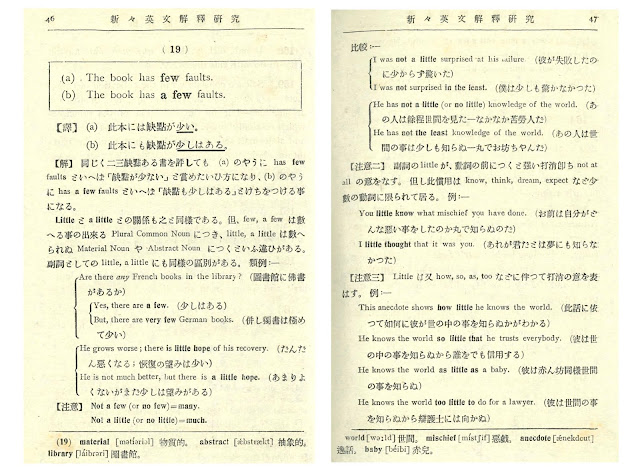 46 新々英文解釋研究
(19)
(a) The book has few faults.
(b) The book has a few faults.
【譯】 (a) 此本には缺點が少い。
(b) 此本にも缺點が少しはある。
【解】 同じく二三缺點ある書を評しても (a) のやうに has few
faults といへば「缺點が少ない」と賞めたいひ方になり、(b) のやう
に has a few faults といへば「缺點も少しはある」とけちをつける事
になる。
Little と a little との關係も之と同樣である。但、few, a few は數
へる事の出來る Plural Common Noun につき、little, a little は數へ
られぬ Material Noun や Abstract Noun につくといふ違ひがある。
副詞としての little, a little にも同樣の區別がある。 類例:—
Are there any French books in the library? (圖書館に佛書
があるか)
Yes, there are a few. (少しはある)
But, there are very few German books. (併し獨書は極め
て少い)
He grows worse; there is little hope of his recovery. (たんだ
ん惡くなる; 恢復の望みは少い)
He is not much better, but there is a little hope. (あまりよ
くないがまだ少しは望みがある)
【注意】 Not a few (or no few)=many.
Not a little (or no little)=much.
(19) material [mətíəriəl] 物質的。 abstract [ǽbstrækt] 抽象的。
library [láibrəri] 圖書館。
新々英文解釋研究 47
比較:—
I was not a little surprised at his failure (彼が失敗したの
に少からず驚いた)
I was not surprised in the least. (僕は少しも驚かなかつた)
He has not a little (or no little) knowledge of the world. (あ
の人は餘程世間を見た—なかなか苦勞人だ)
He has not the least knowledge of the world. (あの人は世
間の事は少しも知らぬ—丸でお坊ちやんだ)
【注意二】 副詞の little が、動詞の前につくと强い打消卽ち not at
all の意をなす。 但し此慣用は know, think, dream, expect など少
數の動詞に限られて居る。 例:—
You little know what mischief you have done. (お前は自分がど
んな惡い事をしたのか丸で知らぬのだ)
I little thought that it was you. (あれが君だとは夢にも知らな
かつた)
【注意三】 Little は又 how, so, as, too などに伴つて打消の意を表
はす。 例:—
This anecdote shows how little he knows the world. (此話に依
つて如何に彼が世の中の事を知らぬかがわかる)
He knows the world so little that he trusts everybody. (彼は世
の中の事を知らぬから誰をでも信用する)
He knows the world as little as a baby. (彼は赤ん坊同樣世間
の事を知らぬ)
He knows the world too little to do for a lawyer. (彼は世間の事
を知らぬから辯護士には向かぬ)
world [wə:ld] 世間。 mischief [místʃif] 惡戲。 anecdote [ǽnekdout]
逸話。 baby [béibi] 赤兒。